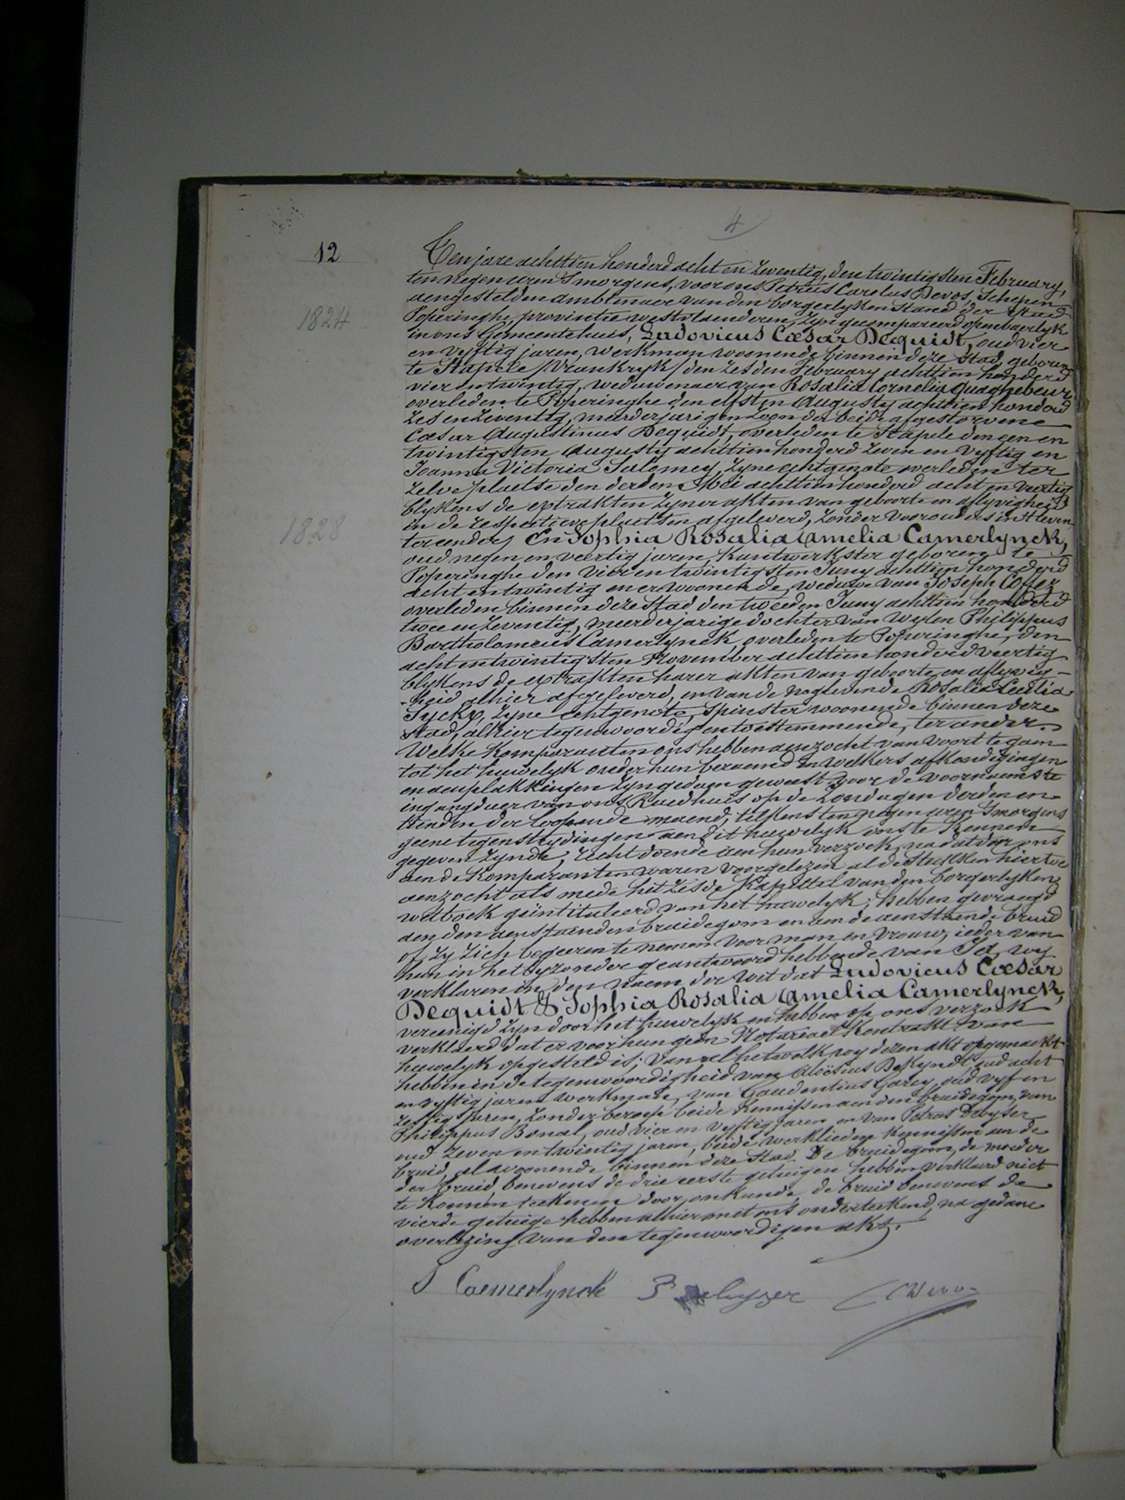 4
12
1824
1828
Ten jare achttien honderd acht en zeventig, den twintigsten February,
ten negen uren 's morgens, voor ons Petrus Carolus Devos, Schepen
aengestelden amblenaer van den borgerlyken Stand der Stad
Poperinghe, provintie Westvlaenderen, zyn gecompareerd openbaerlyk
in ons Gemeentehuis, Ludovicus Cæsar Dequidt, oud vier
en vyftig jaren, werkman woonende binnen deze Stad, geboren
te Stapele /Vrankryk/ den zesden February achttien honderd
vier en twintig, weduwenaer van Rosalia Cornelia Quaghebeur
overleden te Poperinghe den elfsten Augusty achttien honderd
zes en zeventig, meerderjarigen zoon der beide afgestorvene
Cæsar Augustinus Dequidt, overleden te Stapele den een en
twintigsten Augusty achttien honderd zeven en vyftig en
Joanna Victoria Salomey, zyne echtgenote overleden ter
zelve plaetse den derden Mei achttien honderd acht en veertig
blykens de extrakten zyner akten van geboorte en aflyvigheid
in de respective plaetsen afgeleverd, zonder voorouders in leven
ter eender; En Sophia Rosalia Amelia Camerlynck,
oud negen en veertig jaren, kantwerkster geboren te
Poperinghe den vier en twintigsten Juny achttien honderd
acht en twintig en er woonende, weduwe van Joseph Cofez
overleden binnen deze stad den tweeden Juny achttien honderd
twee en zeventig, meerderjarige dochter van wylen Philippus
Bartholomeus Camerlynck, overleden te Poperinghe, den
acht en twintigsten November achttien honderd veertig
blykens de extrakten harer akten van geboorte en aflyvig-
heid alhier afgeleverd, en van de noglevende Rosalia Cecilia
Syckx, zyne echtgenote, spinster woonende binnen deze
stad, alhier tegenwoordig en toestemmende, ter ander.
Welke komparanten ons hebben aenzocht van voort te gaen
tot het huwelyk onder hun beraemd en welkers afkondigingen
en aenplakkingen zyn gedaen geweest voor de voornaemste
ingangdeur van ons Raedhuis op de Zondagen derden en
tienden der loopende maend, telkens ten negen uren 's morgens
geene tegenstrydingen aen dit huwelyk ons te kennen
gegeven zynde; recht doende aen hun verzoek, na dat door ons
aen de komparanten waren voorgelezen al de stukken hiertoe
aenzocht als mede het zesde kapittel van den borgerlyken
wetboek geïntituleerd van het huwelyk; hebben gevraegd
aen den aenstaenden bruidegom en aen de aenstaende bruid
of zy zich begeeren te nemen voor man en vrouw, ieder van
hun in het byzonder geantwoord hebbende van Ja, wy
verklaren in den naem der wet dat Ludovicus Cæsar
Dequidt & Sophia Rosalia Amelia Camerlynck,
vereenigd zyn door het huwelyk en hebben op ons verzoek
verklaerd dat er voor hun geen Notariael kontrakt van
huwelyk opgesteld is; van al hetwelk wy dezen akt opgemaekt
hebben in de tegenwoordigheid van Aloïsius Dekyndt, oud acht
en vyftig jaren werkman, van Gaudentius Garey, oud vyf en
zestig jaren, zonder beroep beide kennissen aen den bruidegom, van
Philippus Bonal, oud vier en vyftig jaren en van Petrus Debyser
oud zeven en twintig jaren, beide werklieden kennissen aen de
bruid, al woonende binnen deze stad. De bruidegom, de moeder
der bruid benevens de drie eerste getuigen hebben verklaerd niet
te konnen teekenen door onkunde, de bruid benevens de
vierde getuige hebben alhier met ons onderteekend, na gedane
overlezing van den tegenwoordigen akt.
S Camerlynck